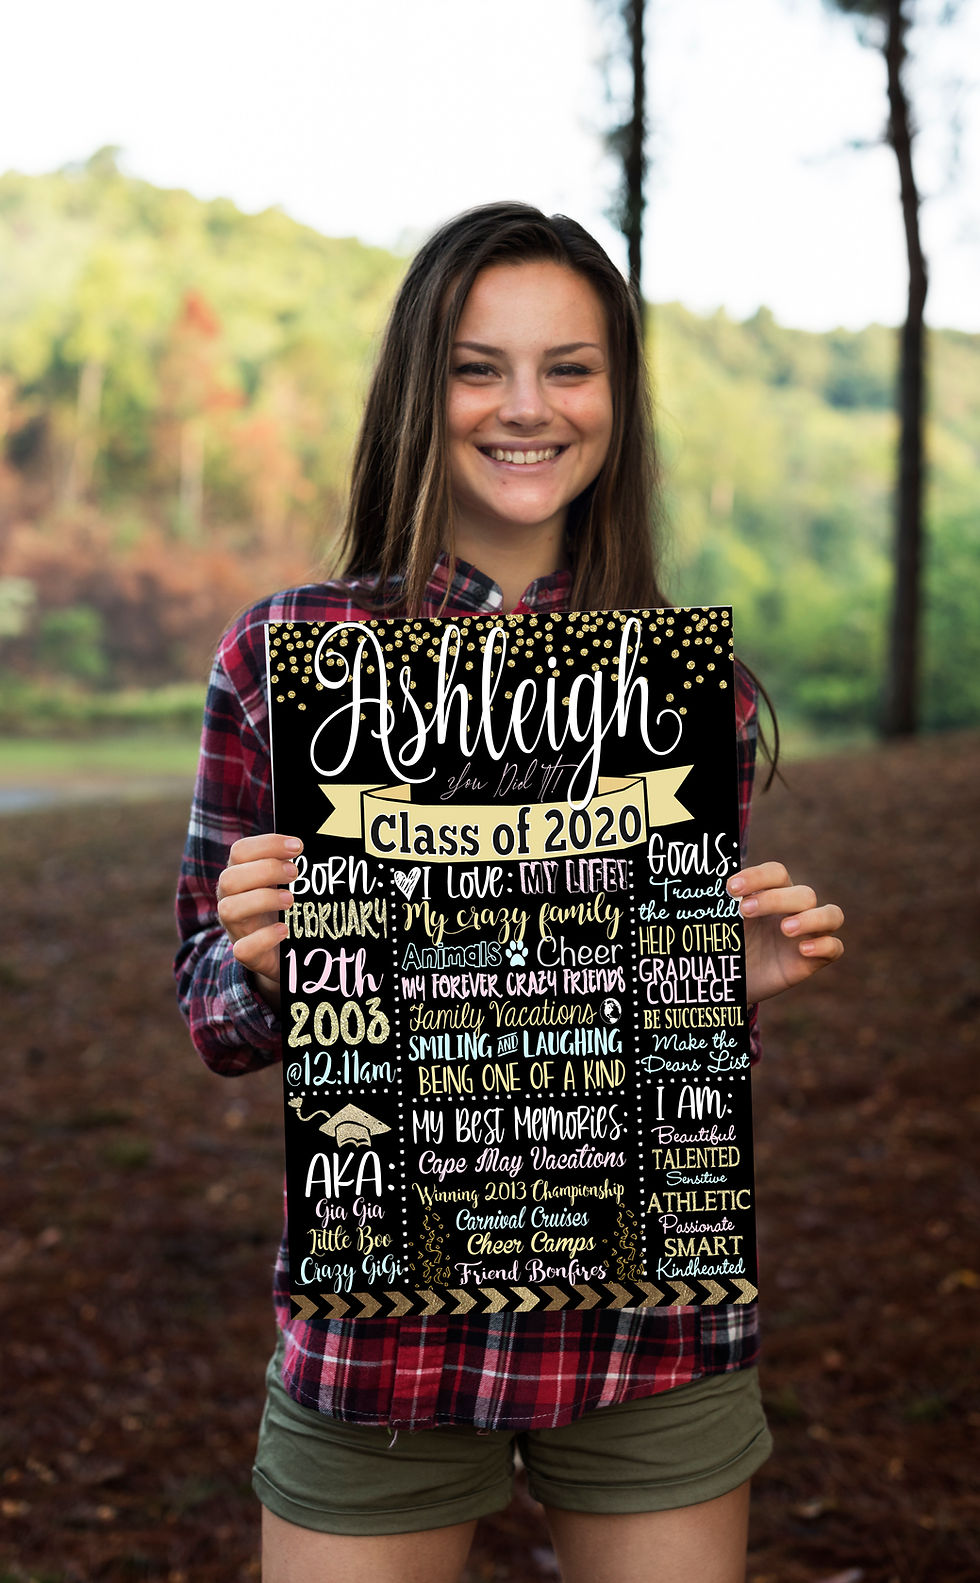 Ashleigh
You Did It!
Class of 2020
BORN:
FEBRUARY
12th
2003
@12:11am
AKA:
Gia Gia
Little Boo
Crazy GiGi
I LOVE: MY LIFE!
My crazy family
Animals Cheer
MY FOREVER CRAZY FRIENDS
Family Vacations
SMILING AND LAUGHING
BEING ONE OF A KIND
MY BEST MEMORIES:
Cape May Vacations
Winning 2013 Championship
Carnival Cruises
Cheer Camps
Friend Bonfires
GOALS:
Travel
the world
HELP OTHERS
GRADUATE
COLLEGE
BE SUCCESSFUL
Make the
Deans List
I AM:
Beautiful
TALENTED
Sensitive
ATHLETIC
Passionate
SMART
Kindhearted